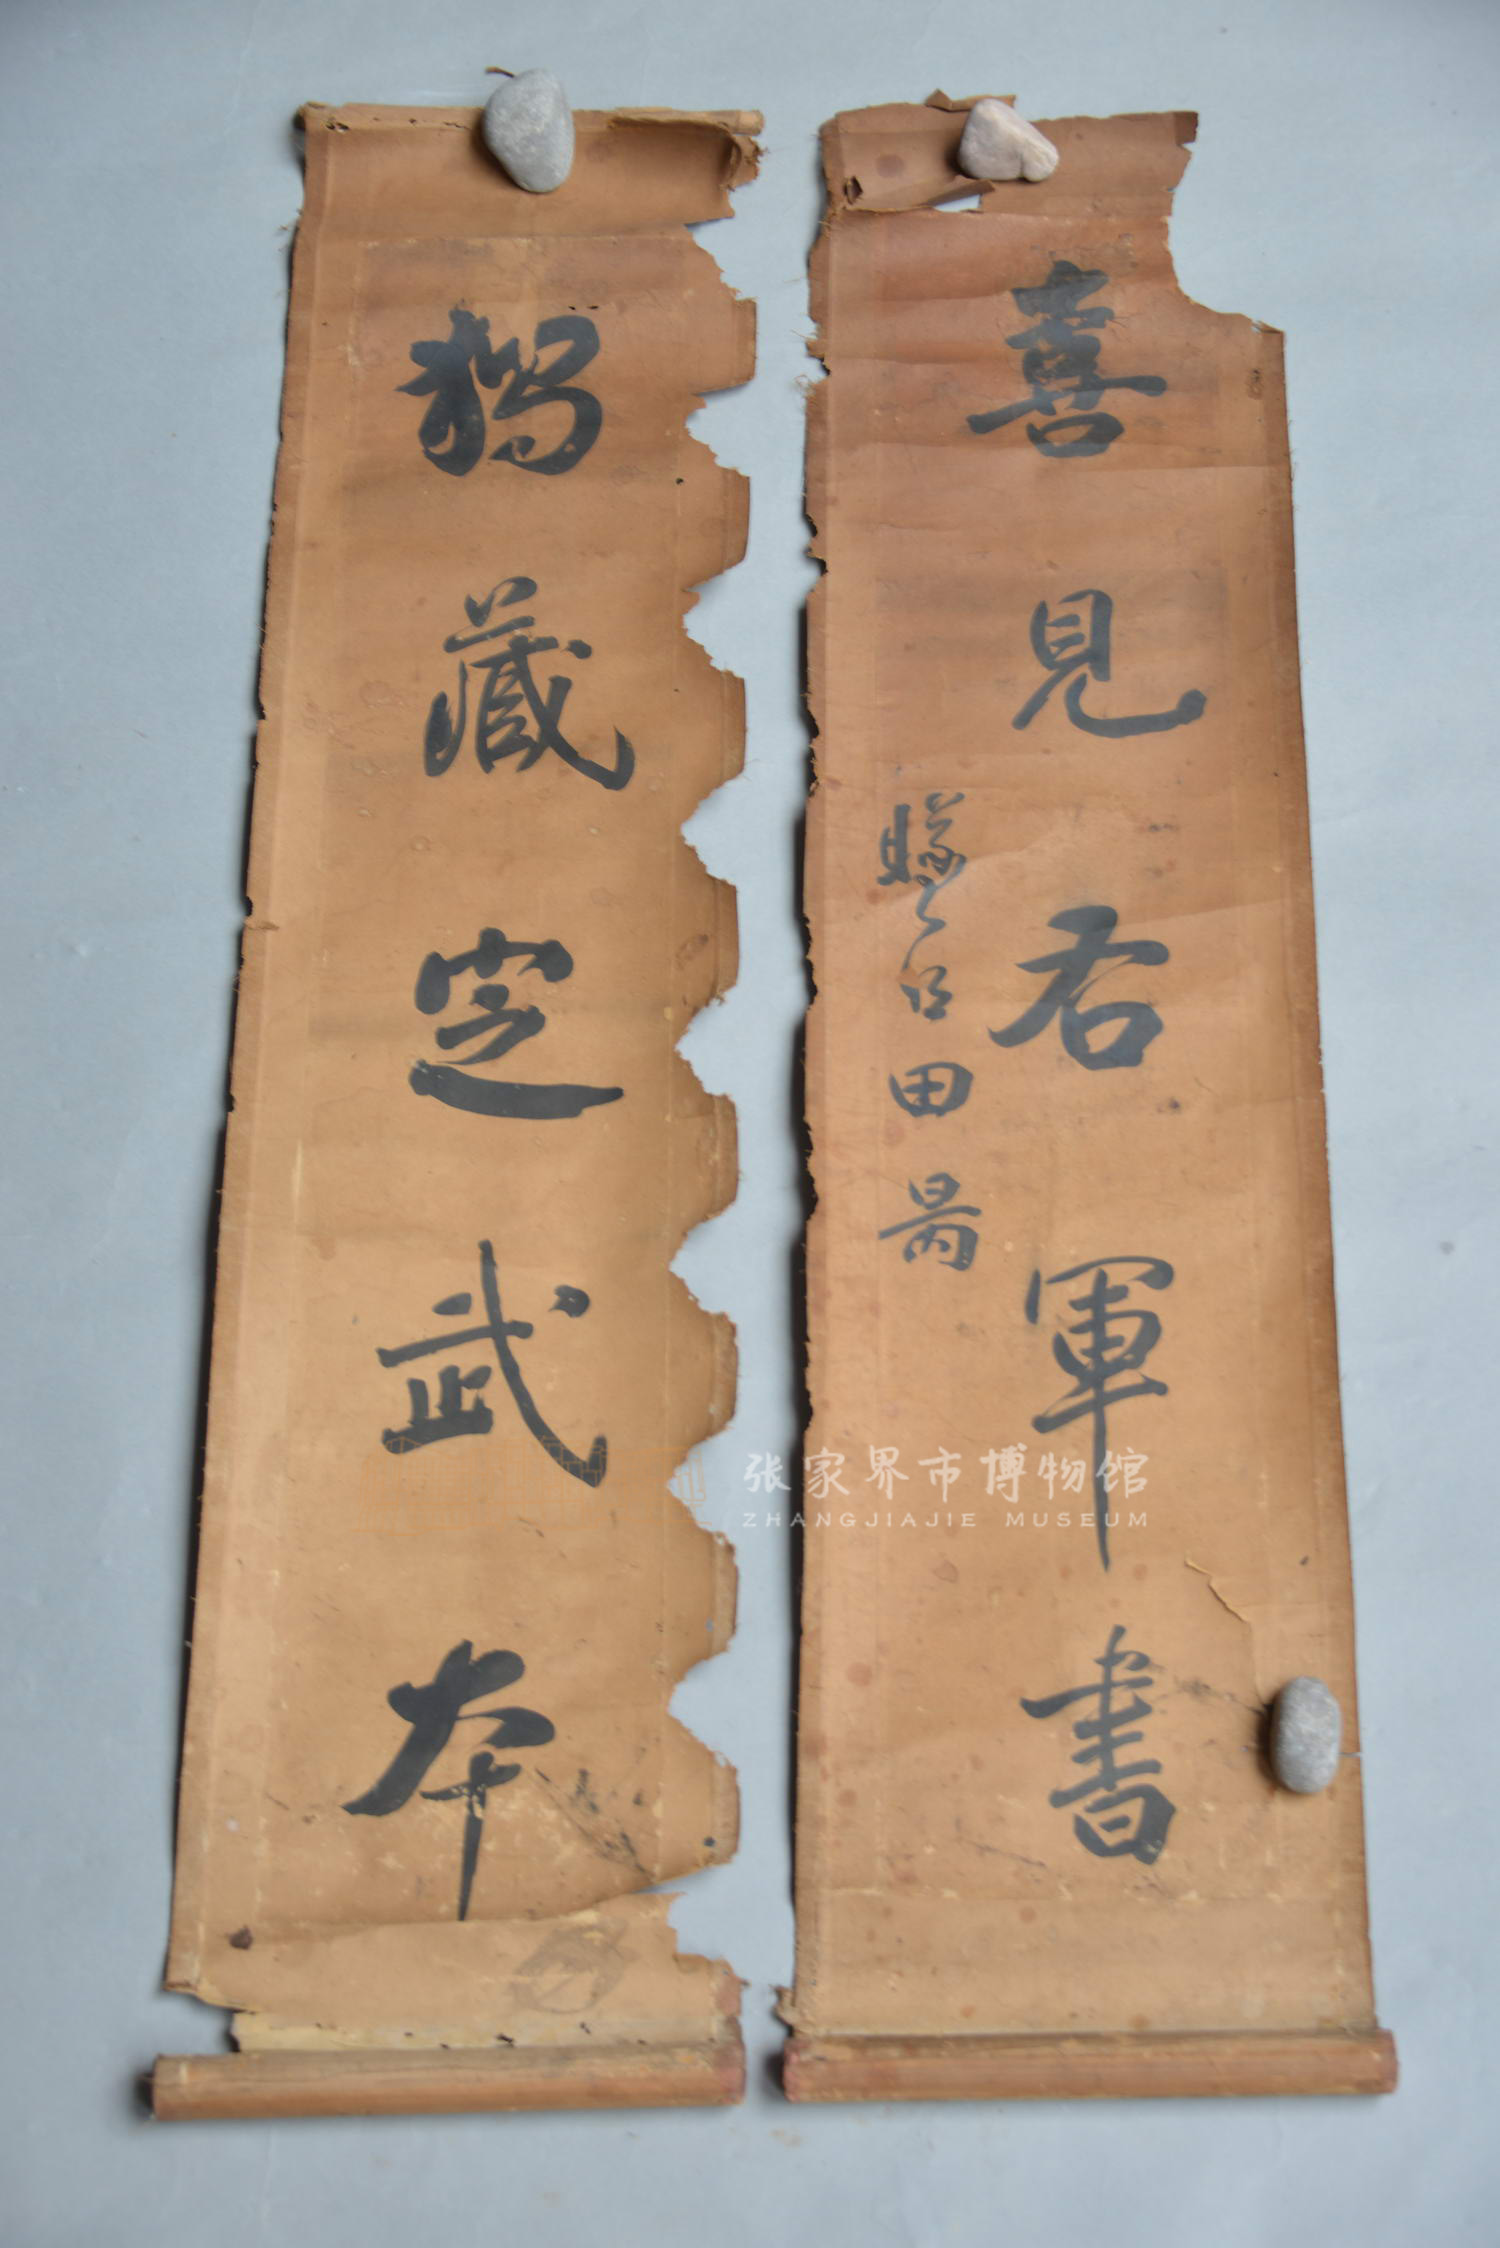 喜見右軍書
田昺
獨藏定武本
张家界市博物馆
ZHANGJIAJIE MUSEUM